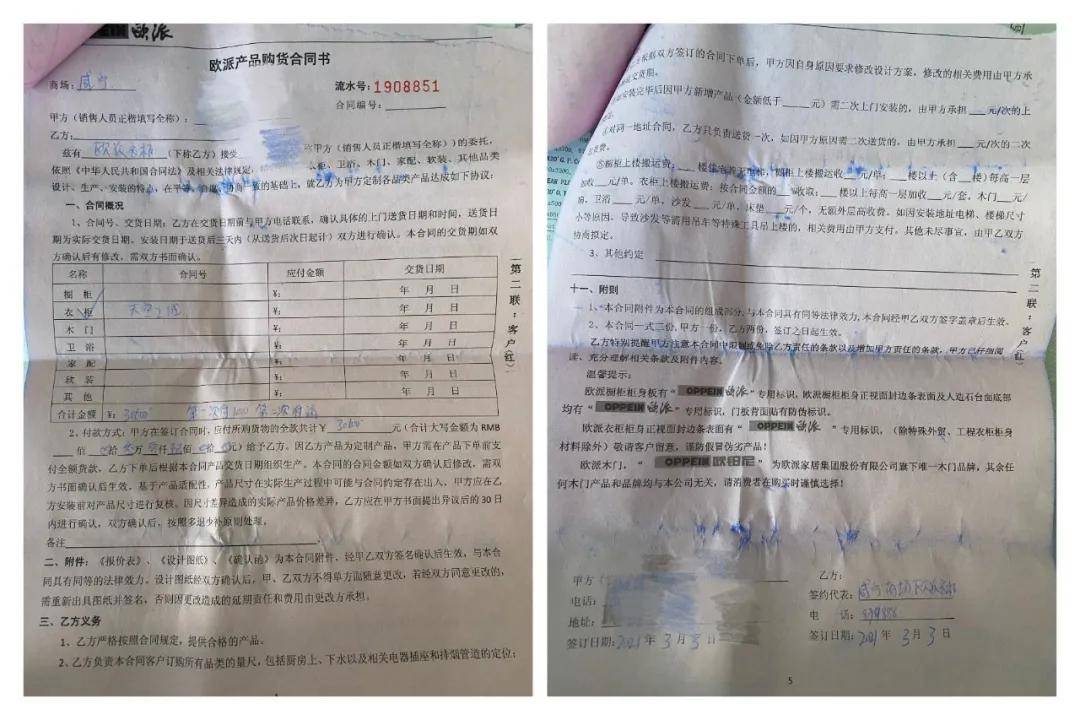 OPPEIN 欧派
欧派产品购货合同书
商场：咸宁
流水号：1908851
合同编号：
甲方（销售人员正楷填写全称）：
乙方：
兹有 欧派衣柜 （下称乙方）接受 称甲方（销售人员正楷填写全称））的委托，
依照《中华人民共和国合同法》及相关法律规定，衣柜、卫浴、木门、家配、软装、其他品类
设计、生产、安装的特点，在平等、自愿、协商一致的基础上，就乙方为甲方定制各品类产品达成如下协议：
一、合同概况
1、合同号、交货日期：乙方在交货日期前与甲方电话联系，确认具体的上门送货日期和时间，送货日
期为实际交货日期。安装日期于送货后三天内（从送货后次日起计）双方进行确认。本合同的交货期如双
方确认后有修改，需双方书面确认。
名称 合同号 应付金额 交货日期
橱 柜 ¥： 年 月 日
衣 柜 天空之城 ¥： 年 月 日
木 门 ¥： 年 月 日
卫 浴 ¥： 年 月 日
家 配 ¥： 年 月 日
软 装 ¥： 年 月 日
其 他 ¥： 年 月 日
合计金额 ¥：
第二联：客户（红）
2、付款方式：甲方在签订合同时，应付所购货物的全款共计¥ 元（合计大写金额为 RMB
佰 拾 万 仟 佰 拾 元）给予乙方。因乙方产品为定制产品，甲方需在产品下单前支
付全额货款，乙方下单后根据本合同产品交货日期组织生产。本合同的合同金额如双方确认后修改，需双
方书面确认后生效。基于产品适配性，产品尺寸在实际生产过程中可能与合同约定存在出入，甲方应在乙
方安装前对产品尺寸进行复核。因尺寸差异造成的实际产品价格差异，乙方应在甲方书面提出异议后的30日
内进行确认，双方确认后，按照多退少补原则处理。
备注
二、附件：《报价表》、《设计图纸》、《确认函》为本合同附件，经甲乙双方签名确认后生效，与本合
同具有同等的法律效力。设计图纸经双方确认后，甲、乙双方不得单方面随意更改，若经双方同意更改的，
需重新出具图纸并签名，否则因更改造成的延期责任和费用由更改方承担。
三、乙方义务
1、乙方严格按照合同规定，提供合格的产品。
2、乙方负责本合同客户订购所有品类的量尺，包括厨房上、下水以及相关电器插座和排烟管道的定位；
根据双方签订的合同下单后，甲方因自身原因要求修改设计方案，修改的相关费用由甲方承
交货期。
安装完毕后因甲方新增产品（金额低于 元）需二次上门安装的，由甲方承担 元/次的上
④对同一地址合同，乙方只负责送货一次，如因甲方原因需二次送货的，由甲方承担 元/次的二次
⑤橱柜上楼搬运费： 楼 橱柜上楼搬运 收 元/单； 楼以上（含 楼）每高一层
加收 元/单，衣柜上楼搬运费：按合同金额的 %收取； 楼以上每高一层加收 元/套，木门 元/
扇，卫浴 元/单，沙发 元/单，床垫 元/个，无额外层高收费。如因安装地址电梯、楼梯尺寸
小等原因、导致沙发等需用吊车等特殊工具吊上楼的，相关费用由甲方支付。其他未尽事宜，由甲乙双方
协商拟定。
3、其他约定
第二联：客户（红）
十一、附则
1、本合同附件为本合同的组成部分，与本合同具有同等法律效力，本合同经甲乙双方签字盖章后生效。
2、本合同一式三份，甲方一份，乙方两份，签订之日起生效。
乙方特别提醒甲方注意本合同中限制或免除乙方责任的条款以及增加甲方责任的条款，甲方已仔细阅
读、充分理解相关条款及附件内容。
温馨提示：
欧派橱柜柜身板有“OPPEIN 欧派”专用标识，欧派橱柜柜身正视面封边条表面及人造石台面底部
均有“OPPEIN 欧派”专用标识，门板背面贴有防伪标识。
欧派衣柜柜身正视面封边条表面有“OPPEIN 欧派”专用标识，（除特殊外贸、工程衣柜柜身
材料除外）敬请客户留意，谨防假冒伪劣产品！
欧派木门，“OPPEIN 欧铂尼”为欧派家居集团股份有限公司旗下唯一木门品牌，其余任
何木门产品和品牌均与本公司无关，请消费者在购买时谨慎选择！
甲方（
电话：
地址：
签订日期：2021年 3月 3日
乙方：
签约代表：
电 话：
签订日期：2021年 3月 3日
5